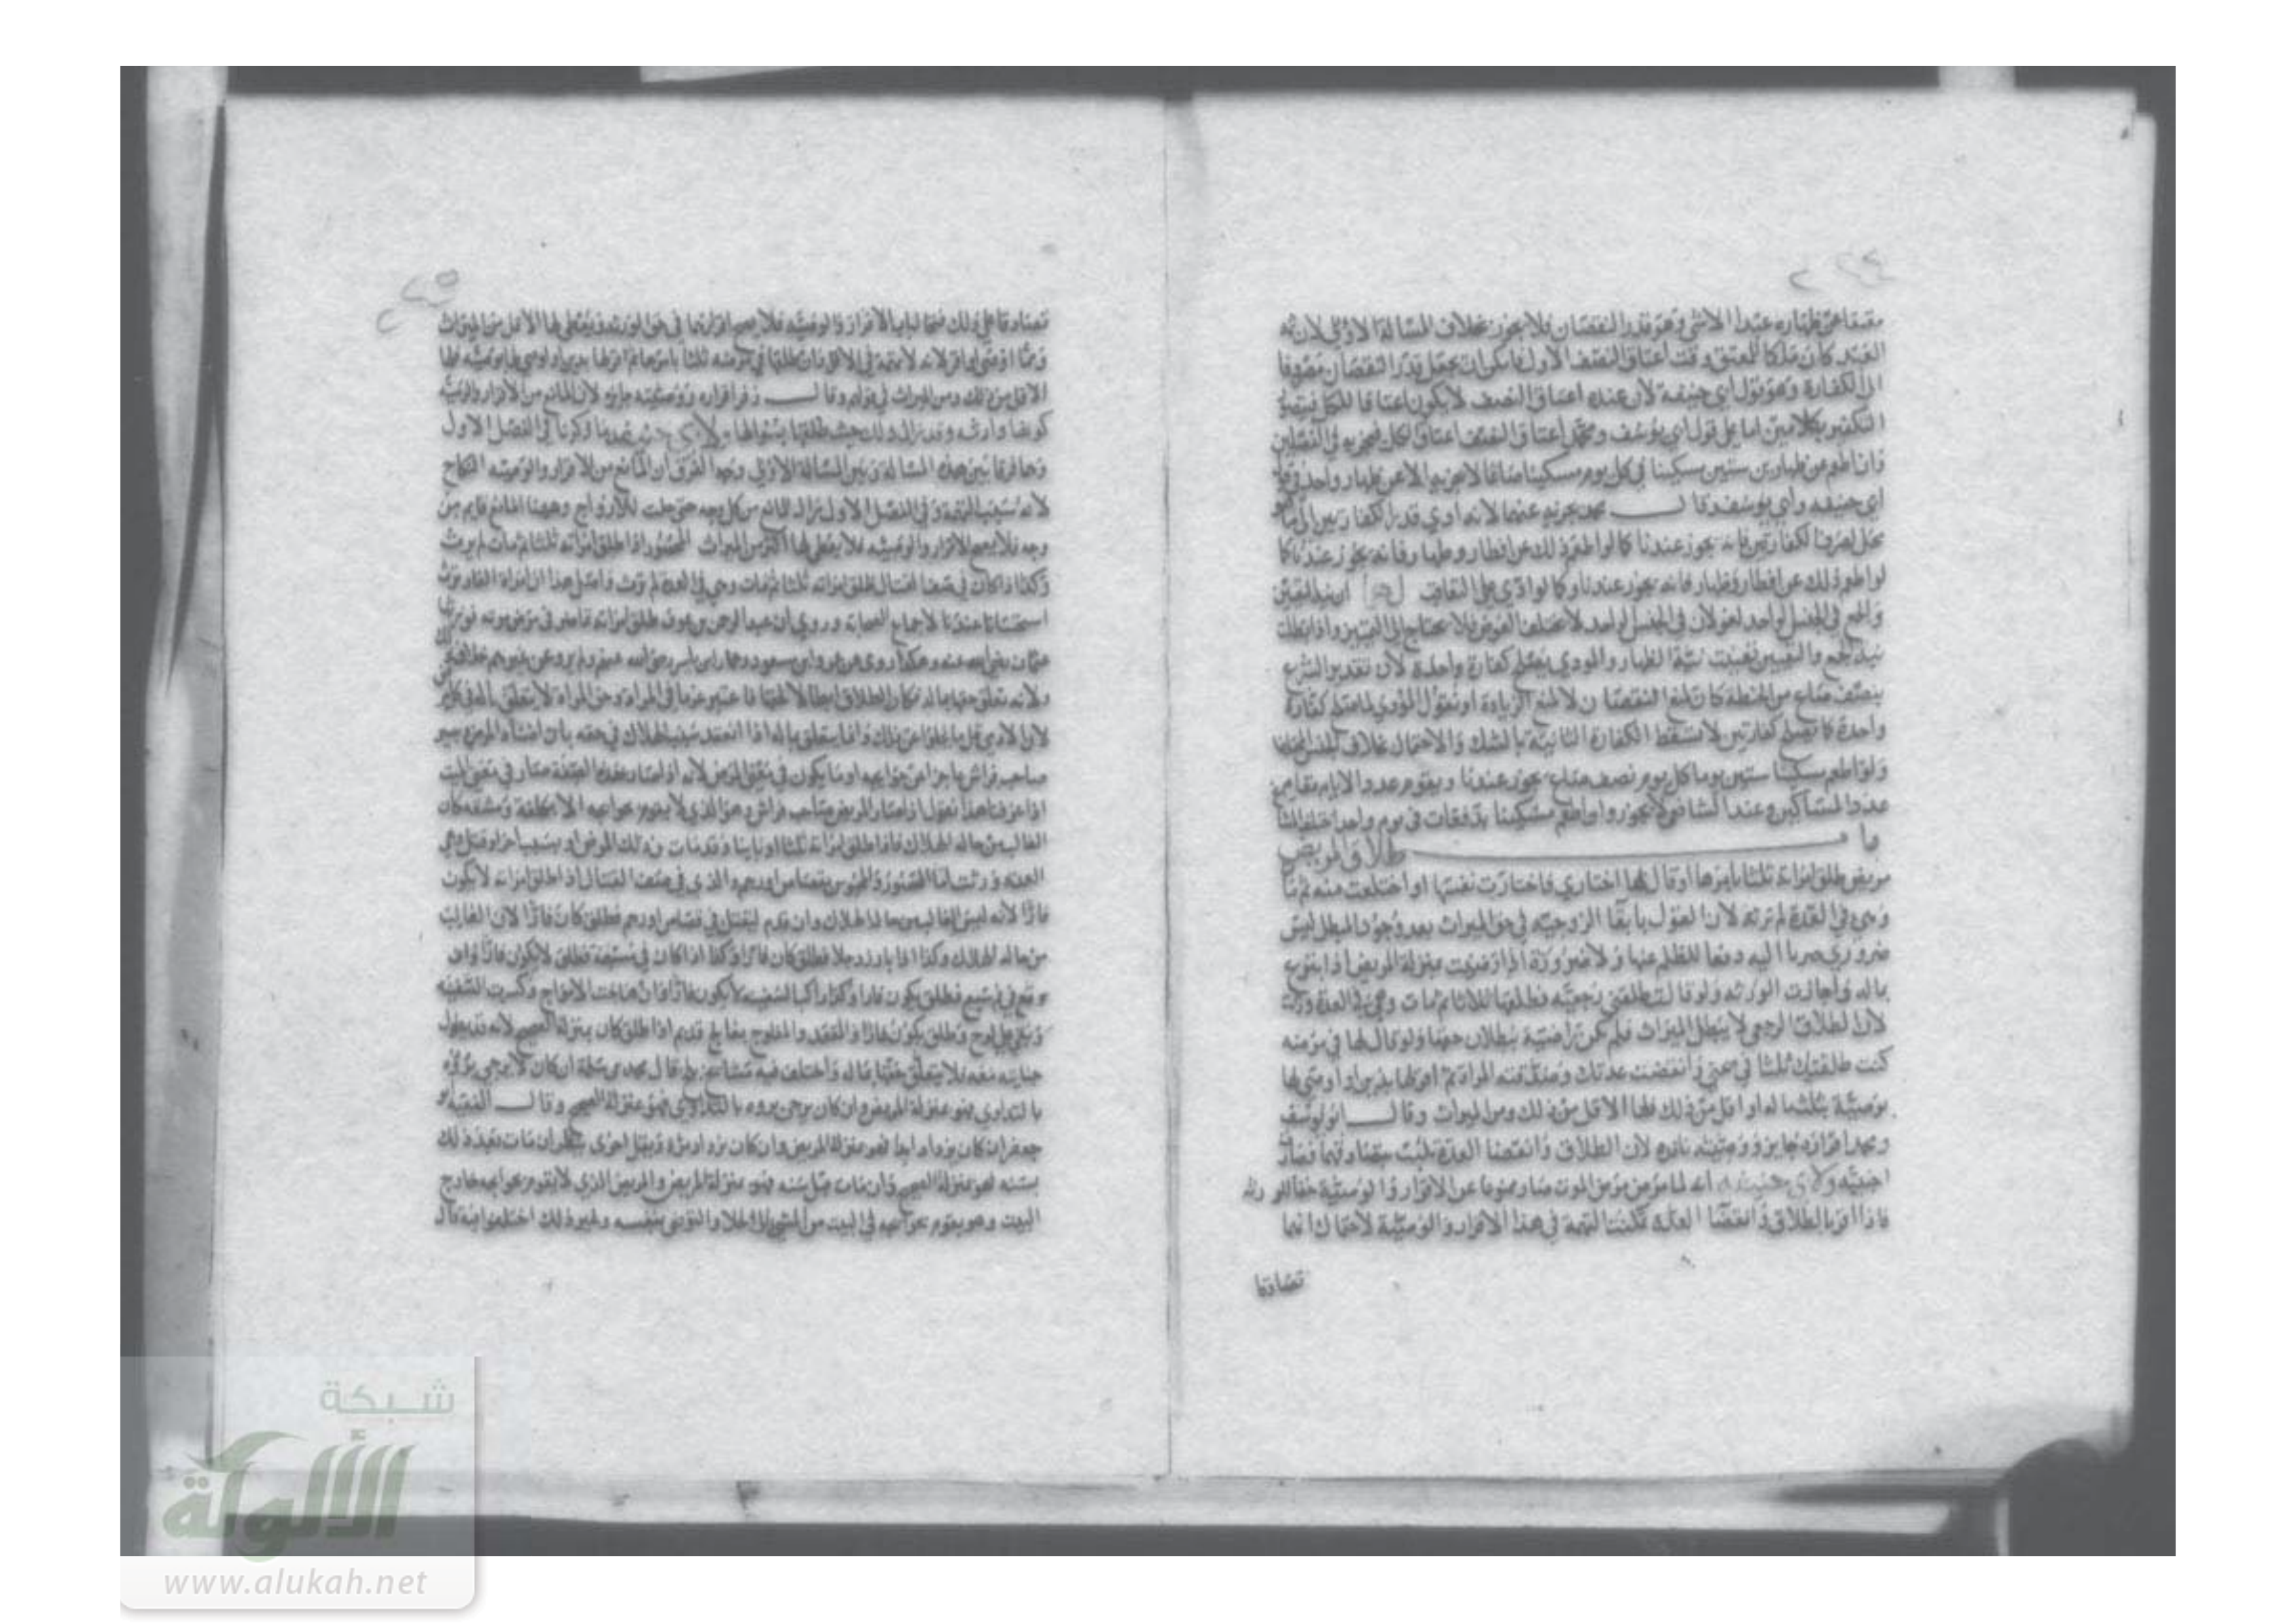 معتقا عن ظهاره عبدا الا شي وهو قدر النقصان فلا يجوز بخلاف المسالة الاولى لان
العبد كان ملكا للمعتق وقت اعتاق النصف الاول فامكن ان يجعل قدر النقصان مصروفا
الى الكفارة وهو قول ابي حنيفة لان عنده اعتاق النصف لا يكون اعتاقا للكل
التكفير بكلامين اما على قول ابي يوسف ومحمد اعتاق النصف اعتاق الكل فيجزيه في الفصلين
وان اطعم عن ظهارين ستين مسكينا في كل يوم مسكينا صاعا لا يجزيه الا عن ظهار واحد في قول
ابي حنيفه وابي يوسف وقال محمد يجزيه عنهما لانه ادى قدر الكفارتين الى ما هو
محل لصرف الكفارتين فانه يجوز عندنا كما لو اطعم ذلك عن افطار وظهار فانه يجوز عندنا كما
لو اطعم ذلك عن افطار وظهار فانه يجوز عندنا وكما لو ادى على التعاقب لهما ان نية التعيين
والجمع في الجنس الواحد لغو لان في الجنس الواحد لا يختلف الغرض فلا يحتاج الى التمييز واذا بطلت
نية الجمع والتعيين بقيت نية الظهار والمودى يصلح كفارة واحدة لان تقدير الشرع
بنصف صاع من الحنطة كان لمنع النقصان لا لمنع الزيادة او نقول المؤدى لما احتمل كفارة
واحدة كما يصلح كفارتين لا تسقط الكفارة الثانية بالشك والاحتمال بخلاف
ولو اطعم مسكينا ستين يوما كل يوم نصف صاع يجوز عندنا ويقوم عدد الايام مقام
عدد المساكين وعند الشافعي لا يجوز ولو اطعم مسكينا بدفعات في يوم واحد
باب طلاق المريض
مريض طلق امراته ثلثا بامرها او قال لها اختاري فاختارت نفسها او اختلعت منه ثم مات
وهي في العدة لم ترثه لان القول بابقا الزوجية في حق الميراث بعد وجود المبطل ليس
ضروري صرنا اليه دفعا للظلم عنها ولا ضرورة اذا رضيت بمنزلة المريض اذا تبرع
بماله واجازت الورثه ولو قالت طلقني رجعية فطلقها ثلاثا ثم مات وهي في العدة ورثته
لان الطلاق الرجعي لا يبطل الميراث فلم تكن راضية ببطلان حقها ولو قال لها في مرضه
كنت طلقتك ثلثا في صحتي وانقضت عدتك وصدقته المراة ثم اقر لها بدين او اوصى لها
بوصية بثلث ماله او اقل من ذلك فلها الاقل من ذلك ومن الميراث وقال ابو يوسف
ومحمد اقراره جايز ووصيته نافذه لان الطلاق وانقضا العدة يثبت بتصادقهما فصارت
اجنبية ولابي حنيفه انه لما مرض مرض الموت صار ممنوعا عن الاقرار والوصية حقا للورثة
فاذا اقر بالطلاق وانقضا العدة تمكنت التهمة في هذا الاقرار والوصية لاحتمال انهما
تصادقا
تصادقا على ذلك فتحا لباب الاقرار والوصية فلا يصح اقرارهما في حق الورثه ويعطى لها الاقل من الميراث
ومما اوصى او اقر لانه لا تهمة في الاقل وان طلقها في مرضه ثلثا بامرها ثم اقر لها بدين او اوصى لها بوصية فلها
الاقل من ذلك ومن الميراث في قولهم وقال زفر اقراره ووصيته جايز لان المانع من الاقرار والوصية
كونها وارثه وقد زال ذلك حيث طلقها بسؤالها ولابي حنيفه ما ذكرنا في الفصل الاول
وهما فرقا بين هذه المسالة وبين المسالة الاولى وجه الفرق ان المانع من الاقرار والوصية النكاح
لانه سبب التهمة وفي الفصل الاول زال المانع من كل وجه حتى حلت للازواج وههنا المانع قايم من
وجه فلا يصح الاقرار والوصية فلا يعطى لها اكثر من الميراث المحصور اذا طلق امراته ثلثا ثم مات لم ترث
وكذا اذا كان في صف القتال فطلق امراته ثلثا ثم مات وهي في العدة لم ترث واصل هذا ان امراة الفار ترث
استحسانا عندنا لاجماع الصحابة وروي ان عبد الرحمن بن عوف طلق امراته تماضر في مرض موته فورثها
عثمان رضي الله عنه وهكذا روي عن عمر وابن مسعود رضي الله عنهم ولم يرو عن غيرهم خلاف ذلك
ولانه تعلق حقها بماله فكان الطلاق ابطالا لحقها
صاحب فراش عاجزا عن حوايجه او ما يكون في معنى المرض لانه اذا صار بهذه الصفة صار في معنى الميت
اذا عرفنا هذا نقول اذا صار المريض صاحب فراش وهو الذي لا يقوم بحوايجه الا بكلفة ومشقه كان
الغالب من حاله الهلاك فاذا طلق امراته ثلثا او باينا وقد مات من ذلك المرض او بسبب اخر او قتل وهي في
العدة ورثت اما المحصور والمحبوس بقصاص او رجم والذي في صف القتال اذا طلق امراته لا يكون
فارا لانه ليس الغالب من حاله الهلاك وان قدم ليقتل في قصاص او رجم فطلق كان فارا لان الغالب
من حاله الهلاك وكذا اذا بارز رجلا فطلق كان فارا وكذا اذا كان في مسبعة فطلق لا يكون فارا وان
وقع في فم سبع فطلق يكون فارا وكذا راكب السفينه لا يكون فارا وان هاجت الامواج وكسرت السفينه
وبقي على لوح وطلق يكون فارا والمقعد والمفلوج بفالج قديم اذا طلق كان بمنزلة الصحيح لانه قد يطول
حياته معه فلا يتعلق حقها بماله واختلف فيه مشايخ بلخ قال محمد بن سلمة ان كان لا يرجى برؤه
بالتداوي فهو بمنزلة المريض وان كان يرجى بروه بالتداوي فهو بمنزلة الصحيح وقال الفقيه ابو
جعفر ان كان يزداد ابدا فهو بمنزلة المريض وان كان يزداد مرة ويقل اخرى ينظر ان مات بعد ذلك
بسنة فهو بمنزلة الصحيح وان مات قبل سنه فهو بمنزلة المريض والمريض الذي لا يقوم بحوايجه خارج
البيت وهو يقوم بحوايجه في البيت من المشي الى الخلا والتوضي بنفسه وغير ذلك اختلفوا فيه قال
شبكة
الألوكة
www.alukah.net